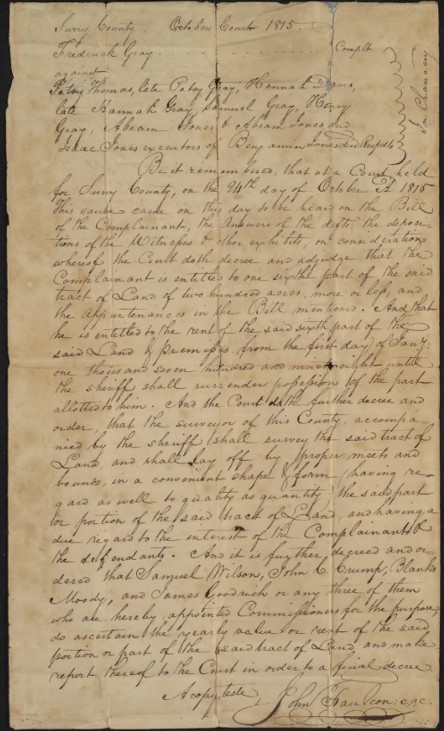 Surry County. October Court 1815.
Frederick Gray Complt
against
Patsy Thomas, late Patsy Gray, Hannah
late Hannah Gray, Samuel Gray, Henry
Gray, Abram Jones & Abram Jones and
Isaac Jones executors of Benjamin Jones decd Respdts
In Chancery
Be it remembered, that at a Court held
for Surry County, on the 24th day of October 1815
This cause came on this day to be heard on the Bill
of the Complainant, the Answers of the defts, the depose
tions of the Witnesses & other exhibits, on consideration
whereof the Court doth decree and adjudge that the
Complainant is entitled to one sixth part of the said
tract of Land of two hundred acres, more or less, and
the appurtenances in the Bill mentioned. And that
he is entitled to the rent of the said sixth part of the
said Land & premises, from the first day of Jany
one thousand seven hundred and ninety eight until
the sheriff shall surrender possession of the part
allotted to him. And the Court doth further decree and
order, that the surveyor of this County, accompa
nied by the sheriff shall survey the said tract of
Land, and shall lay off by proper meets and
bounds, in a convenient shape & form (having re-
gard as well to quality as quantity) the said part
or portion of the said tract of Land, and having a
due regard to the interest of the Complainant &
the defendants. And it is further decreed and or-
dered that Samuel Wilson, John C Crump, Blanks
Moody, and James Goodrich or any three of them
who are hereby appointed Commissioners for the purpose,
do ascertain the yearly value or rent of the said
portion or part of the said tract of Land, and make
report thereof to the Court in order to a final decree.
A copy teste
John Faulcon: c.s.c.